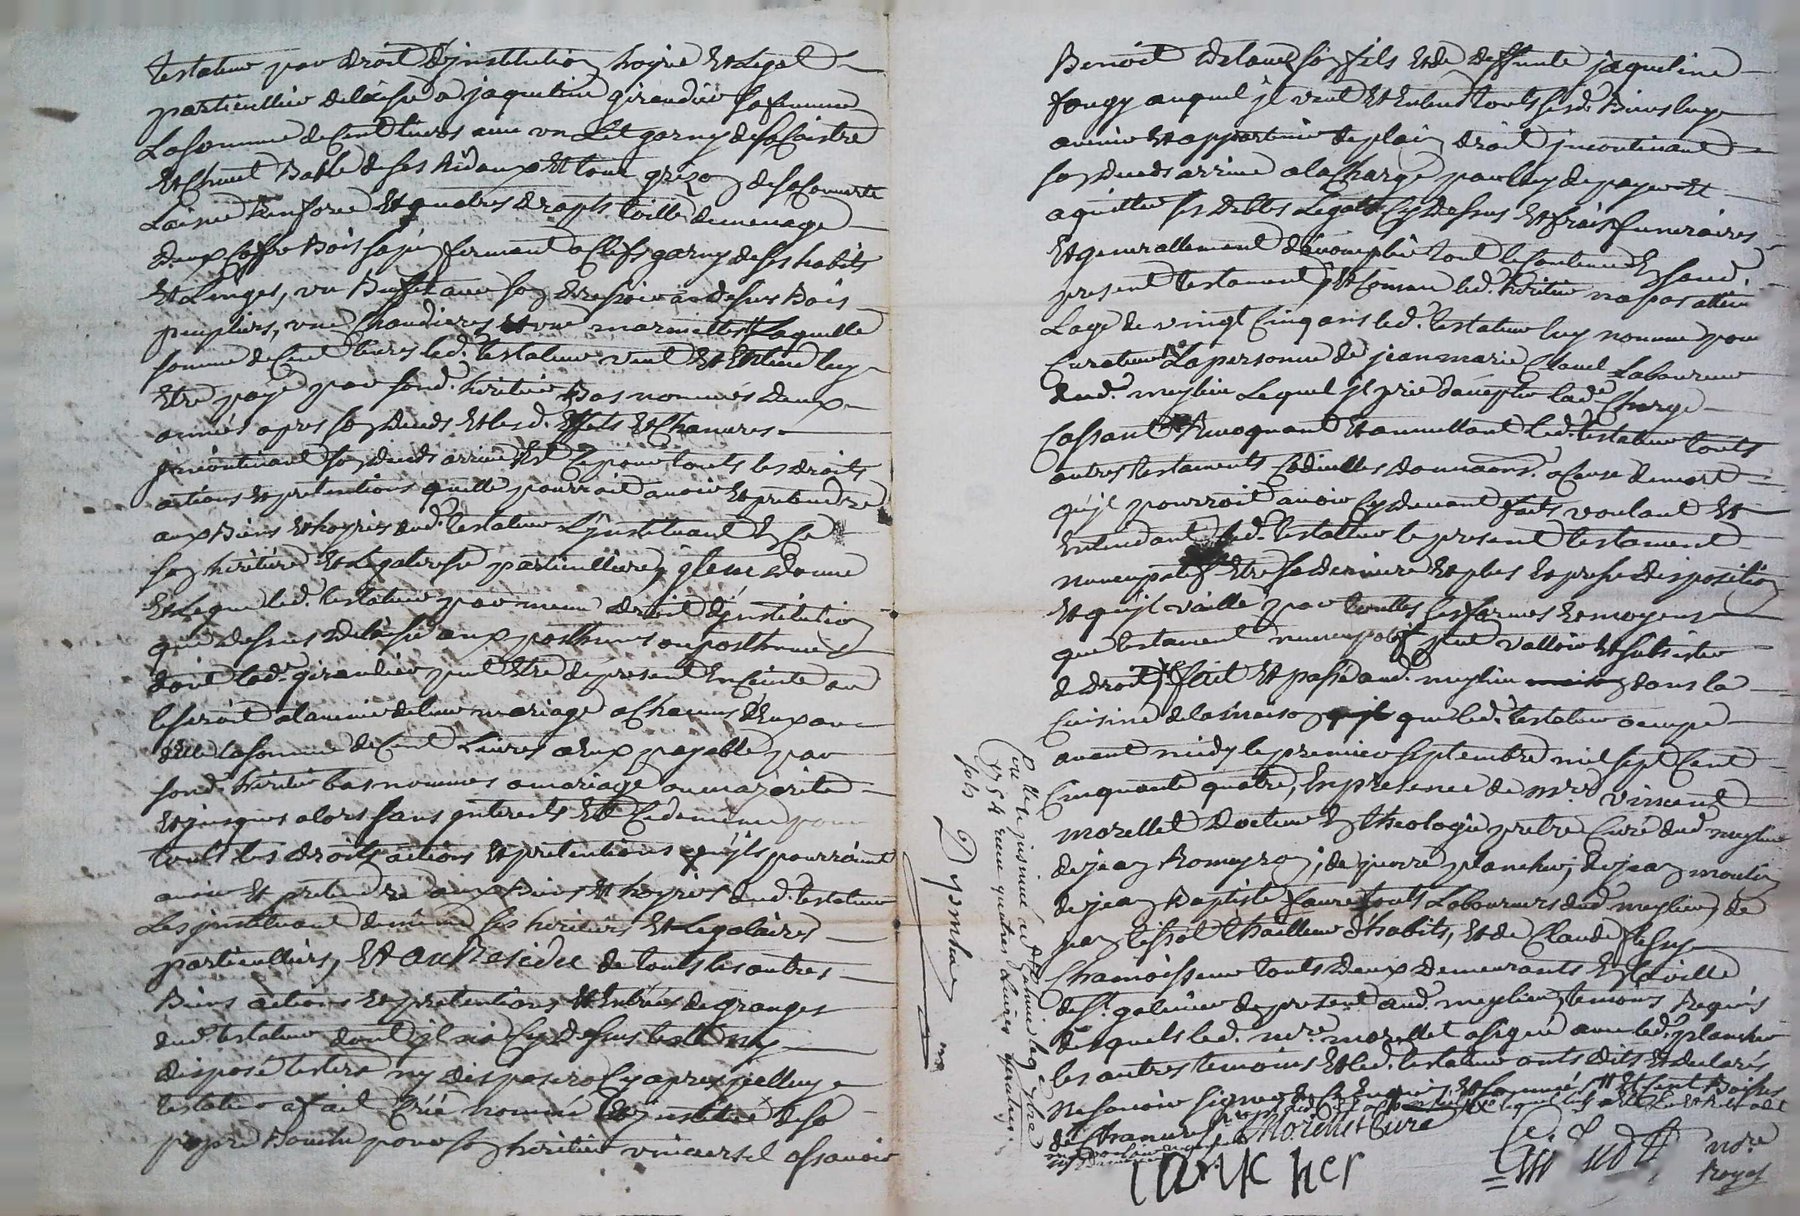 testateur par droit d'jnstitution, hoyrie Et Legat
particullier delaisse a jaqueline giraudier sa femme
La somme de Cent livres avec un Lit garny de sa Coistre
Et Chevet Balle de ses Ridaux Et tour gris de sa Couverte
Laisne Et quatres draps toille de menage
deux Coffre Bois sapin fermant a Clefs garny de ses habits
Et Linges, un Buffet avec son dressoir au dessus Bois
peupliers, une Chaudieres Et une marmittes Laquelle
somme de Cent livres led. testateur veut Et Entend luy
Etre payé par sond. heritier Bas nommés deux
années apres son deceds Et lesd. Effets Et Chanvres
jncontinant son deceds arrivé Et Ce pour touts les droits
actions Et pretentions qu'elle pourroit avoir Et pretendre
aux Biens Et hoyries dud. testateur L'jnstituant En Ce
son heritiere Et Legateresse particulliere,
Et Legue led. testateur par meme droit d'jnstitution
que dessus delaisse aux posthumes ou posthumes
dont lad. giraudier peut Etre de present Enceinte ou
le seroit a l'avenir de leur mariage a Chacuns d'Eux ou
d'Elle la somme de Cent Livres a Eux payable par
sond. heritier bas nommés a mariage ou majorité
Et jusques alors sans jnterests Et Ce de meme pour
touts les droits actions Et pretentions qu'jls pourraient
avoir Et pretendre aux Biens Et hoyries dud. testateur
Les jnstituant de même ses heritiers Et Legataires
particulliers, Et au Residu de touts les autres
Biens actions Et pretentions Et Entrées de granges
dud. testateur dont jl n'a Cy dessus testé ny
disposé testera ny disposera Cy apres jcelluy
testateur a fait Créé nommé Et jnstitué de sa
propre Bouche pour son heritier universel assavoir
Benoit son fils Et de deffunte jaqueline
fougy auquel jl veut Et Entend touts sesd. Biens luy
avenir Et appartenir de plain droit jncontinant
son deceds arrivé a la Charge par luy de payer Et
aquitter ses debtes Legats Cy dessus Et frais funeraires
Et generallement d'acomplir tout le Contenu En sond.
present testament, Et Comme led. heritier na pas atteint
Lage de vingt Cinq ans led. testateur luy nomme pour
Curateur La personne de jean marie Clavel Laboureur
dud. meylieu Lequel jl prie d'accepter lad. Charge
Cassant Revoquant Et annullant led. testateur touts
autres testaments Codicilles donnaons a Cause de mort
qu'jl pourroit avoir Cy devant faits voulant Et
Entendant led. testateur le present testament
nuncupatif Etre sa derniere Et plus Expresse disposition
Et qu'jl vaille par touttes les formes Et moyens
que testament nuncupatif peut valloir Et subsister
de droit, fait Et passé aud. meylieu dans la
Cuisine de la maison que led. testateur occupe
avant midy le premier septembre mil sept Cent
Cinquante quatre, En presence de mre vincent
morellet docteur En theologie pretre Curé dud. meylieu
de jean Romeyron, de pierre plancher, de jean moulin
de jean Baptiste faure touts Laboureurs dud. meylieu, de
tailleur d'habits, Et de Claude
Chamoisseur touts deux demeurants En la ville
de St. galmier de present aud. meylieu, temoins Requis
desquels led. mre morellet a signé avec led. plancher
les autres temoins Et led. testateur ont dits Et declarés
ne savoir signer de Ce Enquis
de Chanvres
Morellet Curé
plancher
nore
Royal
1754
quatres livres